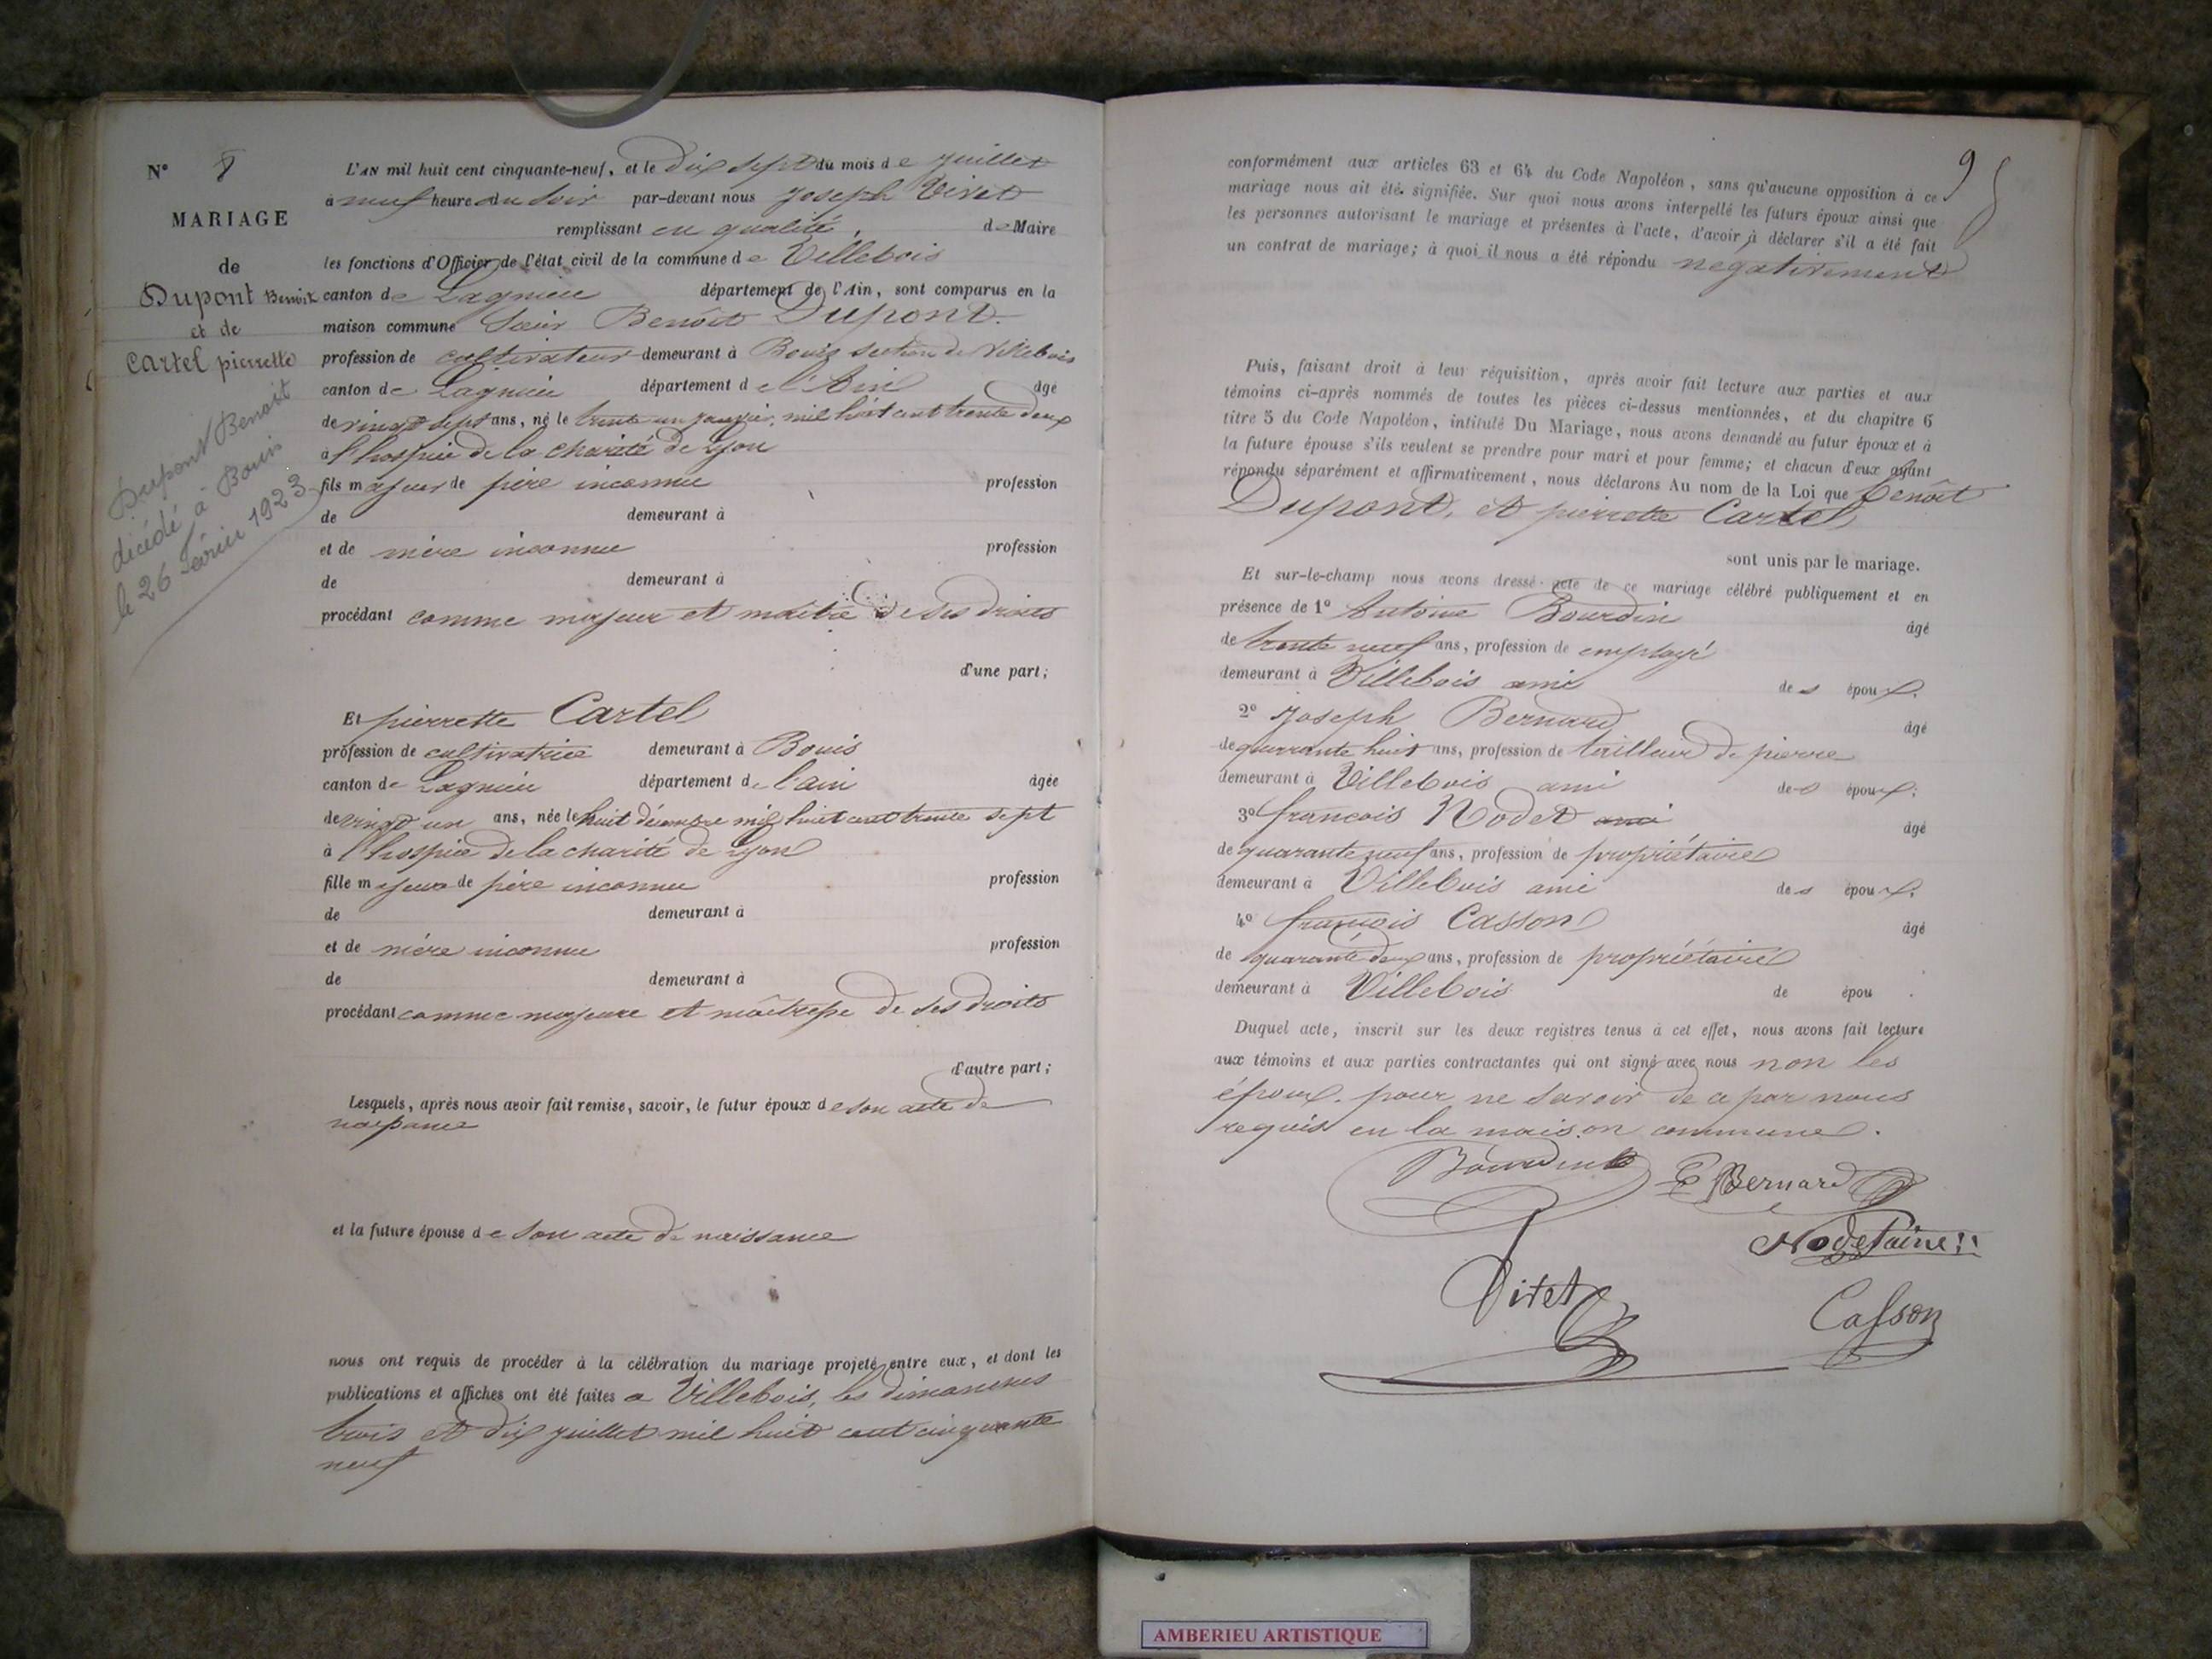 N° 8
MARIAGE
de
Dupont Benoit
et de
Cartel pierrette
Dupont Benoit
décédé à Bouis
le 26 Février 1923
L'AN mil huit cent cinquante-neuf, et le dix sept du mois de juillet
à neuf heure du soir par-devant nous Joseph Vivet
remplissant en qualité, de Maire
les fonctions d'Officier de l'état civil de la commune de Villebois
canton de Lagnieu département de l'Ain, sont comparus en la
maison commune Sieur Benoît Dupont.
profession de cultivateur demeurant à Bouis section de Villebois
canton de Lagnieu département de l'Ain âgé
de vingt sept ans, né le trente un janvier, mil huit cent trente deux
à l'hospice de la charité de Lyon
fils majeur de père inconnu profession
de demeurant à
et de mère inconnue profession
de demeurant à
procédant comme majeur et maître de ses droits
d'une part;
Et pierrette Cartel
profession de cultivatrice demeurant à Bouis
canton de Lagnieu département de l'ain âgée
de vingt un ans, née le huit décembre mil huit cent trente sept
à l'hospice de la charité de Lyon
fille majeure de père inconnu profession
de demeurant à
et de mère inconnue profession
de demeurant à
procédant comme majeure et maîtresse de ses droits
d'autre part;
Lesquels, après nous avoir fait remise, savoir, le futur époux de son acte de
naissance
et la future épouse de son acte de naissance
nous ont requis de procéder à la célébration du mariage projeté entre eux, et dont les
publications et affiches ont été faites a Villebois, les dimanches
trois et dix juillet mil huit cent cinquante
neuf
9
conformément aux articles 63 et 64 du Code Napoléon, sans qu'aucune opposition à ce
mariage nous ait été signifiée. Sur quoi nous avons interpellé les futurs époux ainsi que
les personnes autorisant le mariage et présentes à l'acte, d'avoir à déclarer s'il a été fait
un contrat de mariage; à quoi il nous a été répondu négativement
Puis, faisant droit à leur réquisition, après avoir fait lecture aux parties et aux
témoins ci-après nommés de toutes les pièces ci-dessus mentionnées, et du chapitre 6
titre 5 du Code Napoléon, intitulé Du Mariage, nous avons demandé au futur époux et à
la future épouse s'ils veulent se prendre pour mari et pour femme; et chacun d'eux ayant
répondu séparément et affirmativement, nous déclarons Au nom de la Loi que Benôit
Dupont, et pierrette Cartel
sont unis par le mariage.
Et sur-le-champ nous avons dressé acte de ce mariage célébré publiquement et en
présence de 1° Antoine Bourdin âgé
de trente neuf ans, profession de employé
demeurant à Villebois ami des époux.
2° Joseph Bernard âgé
de quarrante huit ans, profession de tailleur de pierre
demeurant à Villebois ami des époux;
3° francois Nodet ami âgé
de quarante neuf ans, profession de propriétaire
demeurant à Villebois ami des époux.
4° françois Casson âgé
de quarante deux ans, profession de propriétaire
demeurant à Villebois de épou .
Duquel acte, inscrit sur les deux registres tenus à cet effet, nous avons fait lecture
aux témoins et aux parties contractantes qui ont signé avec nous non les
époux. pour ne savoir de ce par nous
requis en la maison commune.
Bourdin
Bernard
Nodet aine
Vivet
Casson
AMBERIEU ARTISTIQUE